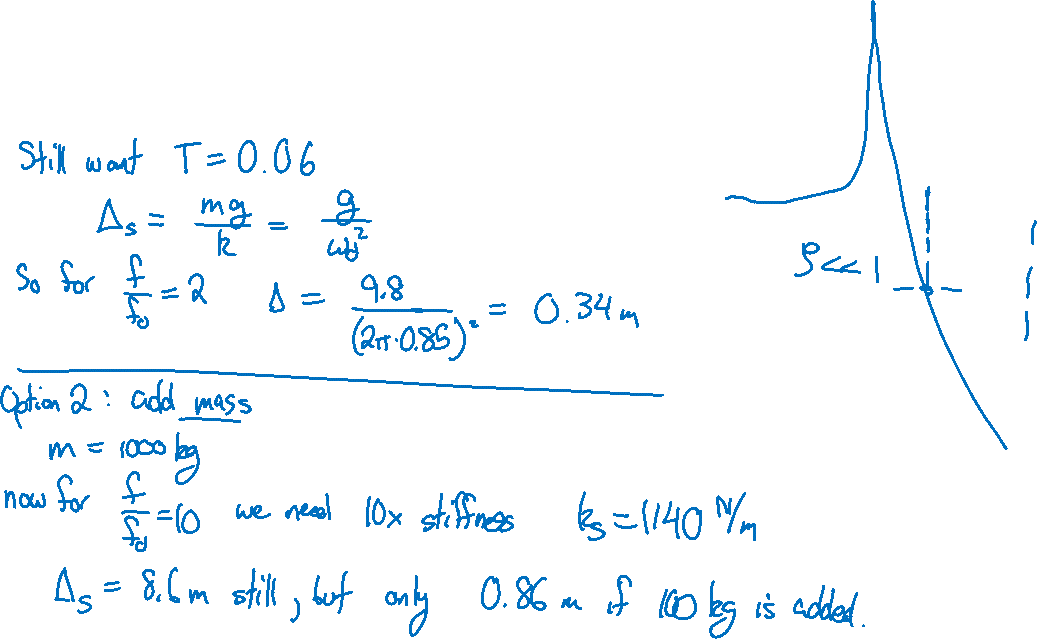 Still want T = 0.06
Δs = mg/k = g/ω₀²
So for f/f₀ = 2 Δ = 9.8/(2π·0.85)² = 0.34 m
ζ << 1
Option 2: add mass
m = 1000 kg
now for f/f₀ = 10 we need 10x stiffness ks = 1140 N/m
Δs = 8.6 m still, but only 0.86 m if 100 kg is added.